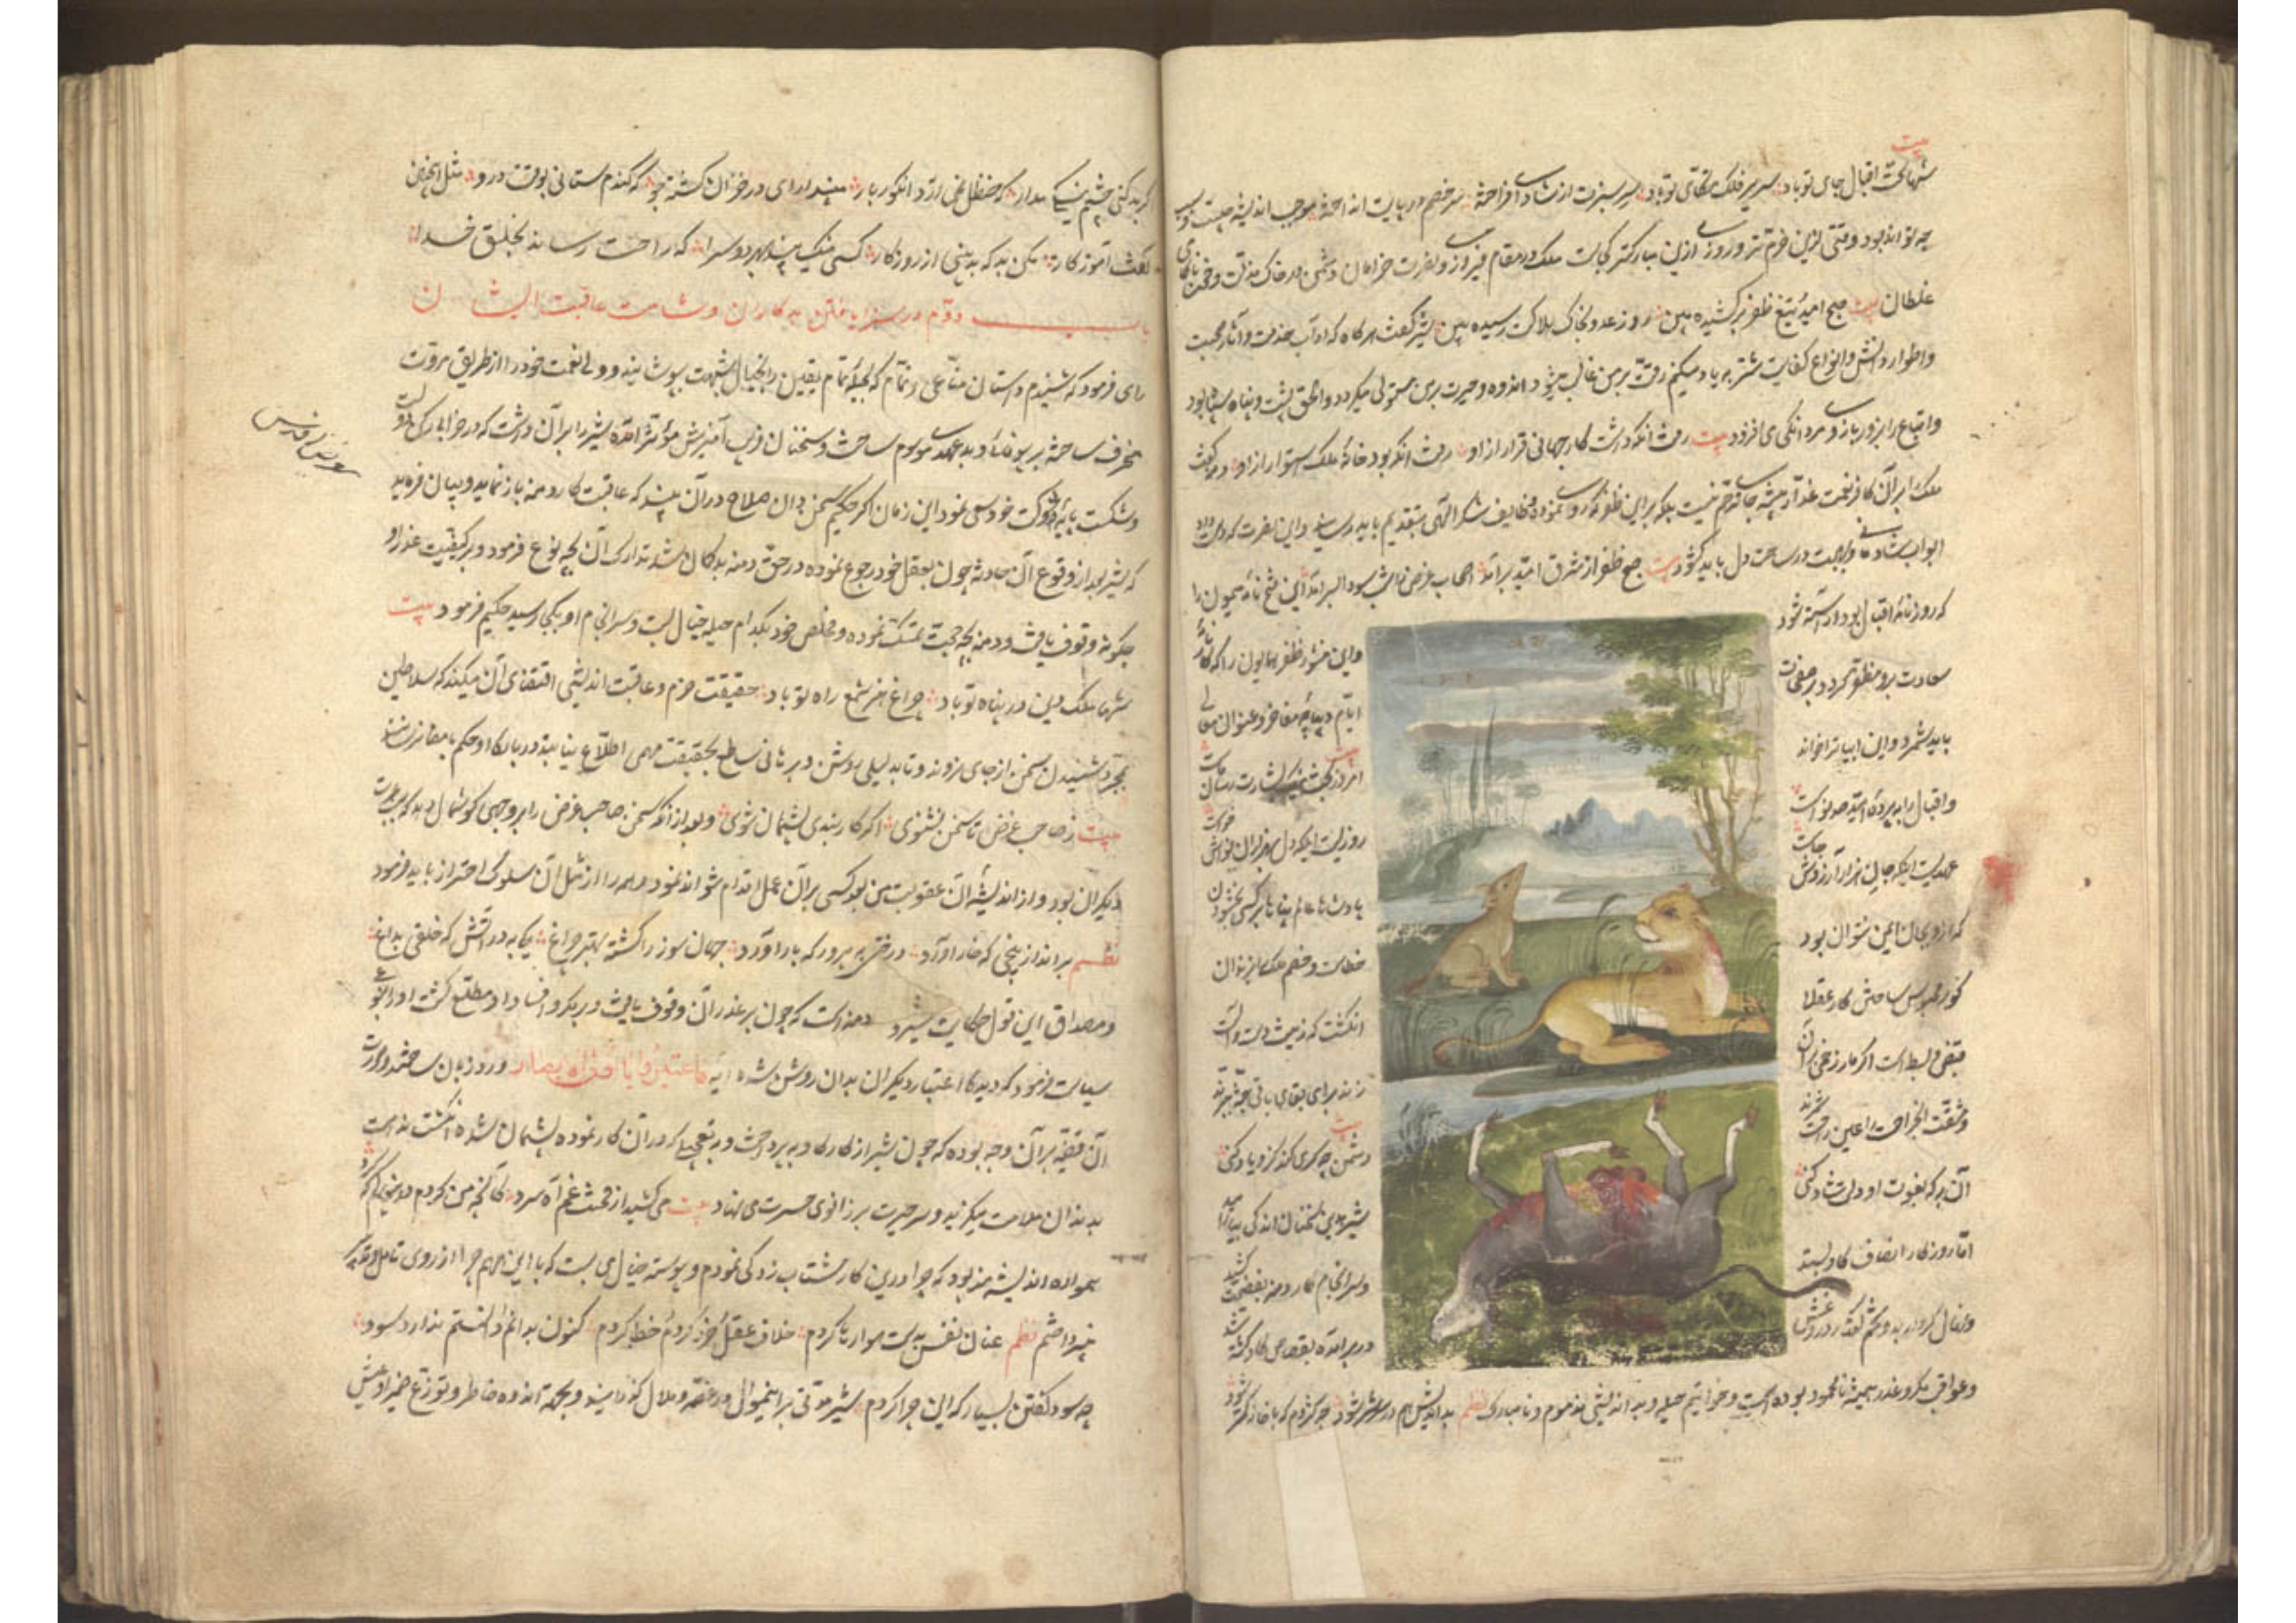 بیت
شها تخت اقبال جای تو باد سریر فلک متکای تو باد سر سبزت از شادی افراخته سر خصم در پایت انداخته موجب اندیشه چیست
چه تواند بود وقتی ازین خرم‌تر و روزی ازین مبارکتر کجاست ملک در مقام فیروزی و نصرت خرامان و دشمن در خاک مذلت و خون ناکامی
غلطان بیت صبح امید تیغ ظفر برکشیده بین روز عدو بخاک هلاکت رسیده بین شیر گفت هرگاه که آداب خدمت و آثار محبت
و اطوار دانش و انواع کفایت شتربه یاد میکنم رقت بر من غالب میشود و اندوه و حیرت بر من مستولی میگردد و الحق پشت و پناه سپاه بود
و اتباع را بزور بازو مردانگی می افزود بیت رفت آنکه داشت کار جهانی قرار ازو رفت آنکه بود خانه ملک استوار ازو دمنه گفت
ملک را بر آن کافر نعمت غدار بیشه جای ترحم نیست بلکه بر این ظفر که روی نموده وظایف شکر الهی بتقدیم باید رسانید و این نصرت که دست داده
ابواب شادمانی و بهجت در ساحت دل باید گشود بیت صبح ظفر از مشرق امید برآمد اصحاب غرض را شب سودا بسر آمد این فتح نامه میمون را
که روزنامه اقبال بدو آراسته شود
و این منشور ظفر همایون را که کارنامه
سعادت برو مطرز گردد بر صفحات
ایام دیباچه مفاخر و عنوان معالی
باید شمرد و این ابیات خواند
بیت امروز بخت نیک بشارت رسان ماست
و اقبال را به پرده امید صد نواست
روزیست اینکه دل بهزاران نواش خواست
عهدیست اینکه جان بهزار آرزوش جست
پادشاها عالم پناها بر کسی بخشودن
که ازو بجان ایمن نتوان بود
خطاست و خصم ملک را بزندان
گور محبوس ساختن کار عقلا
انگشت که زینت دست و آلت
قبض و بسط است اگر مار زخمی بر آن
زند برای بقای باقی جثه ببرند
و مشقت آن جراحت را عین راحت شمرند
بیت دشمن چه کری کند کزو یاد کنی
آن به که بفوت او دلی شاد کنی
شیر بدین سخنان اندکی بیارامید
اما روزگار انصاف گاو بستد
و سرانجام کار دمنه بفضیحت کشید
و نهال کردار بد و تخم گفتار دروغش
در بر آمده بقصاص گاو کشته شد
و عواقب مکر و غدر همیشه نامحمود بوده است و خواتیم حیله و بد اندیشی مذموم و نامبارک نظم بداندیش هم در سر شر شود چو کژدم که با خانه کمتر شود
گر بد کنی چشم نیکی مدار که حنظل نمی آرد انگور بار مپندار ای در خزان کشته جو که گندم ستانی بوقت درو مثل این سخن
گفت آموزگار مکن بد که بد بینی از روزگار کسی نیک بیند بهر دو سرا که راحت رساند بخلق خدا
باب دوم در سزا یافتن بدکاران و شامت عاقبت ایشان
رای فرمود که شنیدم داستان ساعی و نمام که بحیله تمام یقین را بخیال شبهت بپوشانید و ولی نعمت خود را از طریق مروت
منحرف ساخته بر بیوفائی و بد عهدی موسوم ساخت و سخنان فریب آمیزش مؤثر آمده شیر را بر آن داشت که در خرابی ارکان دولت
و شکست پایه شوکت خود سعی نمود این زمان اگر حکیم سخن دان صلاح در آن بیند که عاقبت کار دمنه باز نماید و بیان فرماید
که شیر بعد از وقوع آن حادثه چون بعقل خود رجوع نموده در حق دمنه بدگمان شد تدارک آن بچه نوع فرمود و بر کیفیت غدر او
چگونه وقوف یافت و دمنه بچه حجت تمسک نموده و مخلص خود بکدام حیله خیال بست و سرانجام او بکجا رسید حکیم فرمود بیت
شها ملک و دین در پناه تو باد چراغ هنر شمع راه تو باد حقیقت حزم و عاقبت اندیشی اقتضای آن میکند که سلاطین
بمجرد شنیدن سخن از جای نروند و تا بدلیلی روشن و برهانی ساطع بحقیقت مهمی اطلاع نیابند در باب آن حکم بامضا نرسانند
بیت ز صاحب غرض تا سخن نشنوی اگر کار بندی پشیمان شوی و بعد از آنکه سخن صاحب غرض را بر وجهی گوشمال دهد که سبب عبرت
دیگران بود و از اندیشه آن عقوبت من بعد کسی بر آن عمل اقدام نتواند نمود و همه را از مثل آن سلوک احتراز باید فرمود
نظم برانداز بیخی که خار آورد درختی به پرور که بار آورد جهان سوز را کشته بهتر چراغ یکی به در آتش که خلقی بداغ
و مصداق این قول حکایت شیر و دمنه است که چون بر غدر آن وقوف یافت و بر مکر و افساد او مطلع گشت او را بنوعی
سیاست فرمود که دیده اعتبار دیگران بدان روشن شده آیه فاعتبروا یا اولی الابصار ورد زبان ساختند و صورت
آن قضیه بر آن وجه بوده که چون شیر از کار گاو بپرداخت و به تعجیلی که در آن کار نموده پشیمان شده انگشت ندامت
به دندان ملامت میگزید و سر حیرت بر زانوی حسرت می نهاد بیت می کشید از محنت غم آه سرد کانچه من کردم
همواره اندیشه مند بود که چرا درین کار شتاب زدگی نمودم و پیوسته خیال می بست که با این مهم چرا از روی تامل
نپرداختم نظم عنان نفس بدست هوا رها کردم خلاف عقل و خرد کردم و خطا کردم کنون بدانم و دانستنم ندارد سود
چه سود گفتن بسیار که این چرا کردم شیر مدتی بر این منوال در غصه و ملال گذرانید و بجهت اندوه خاطر و توزع ضمیر او عیش